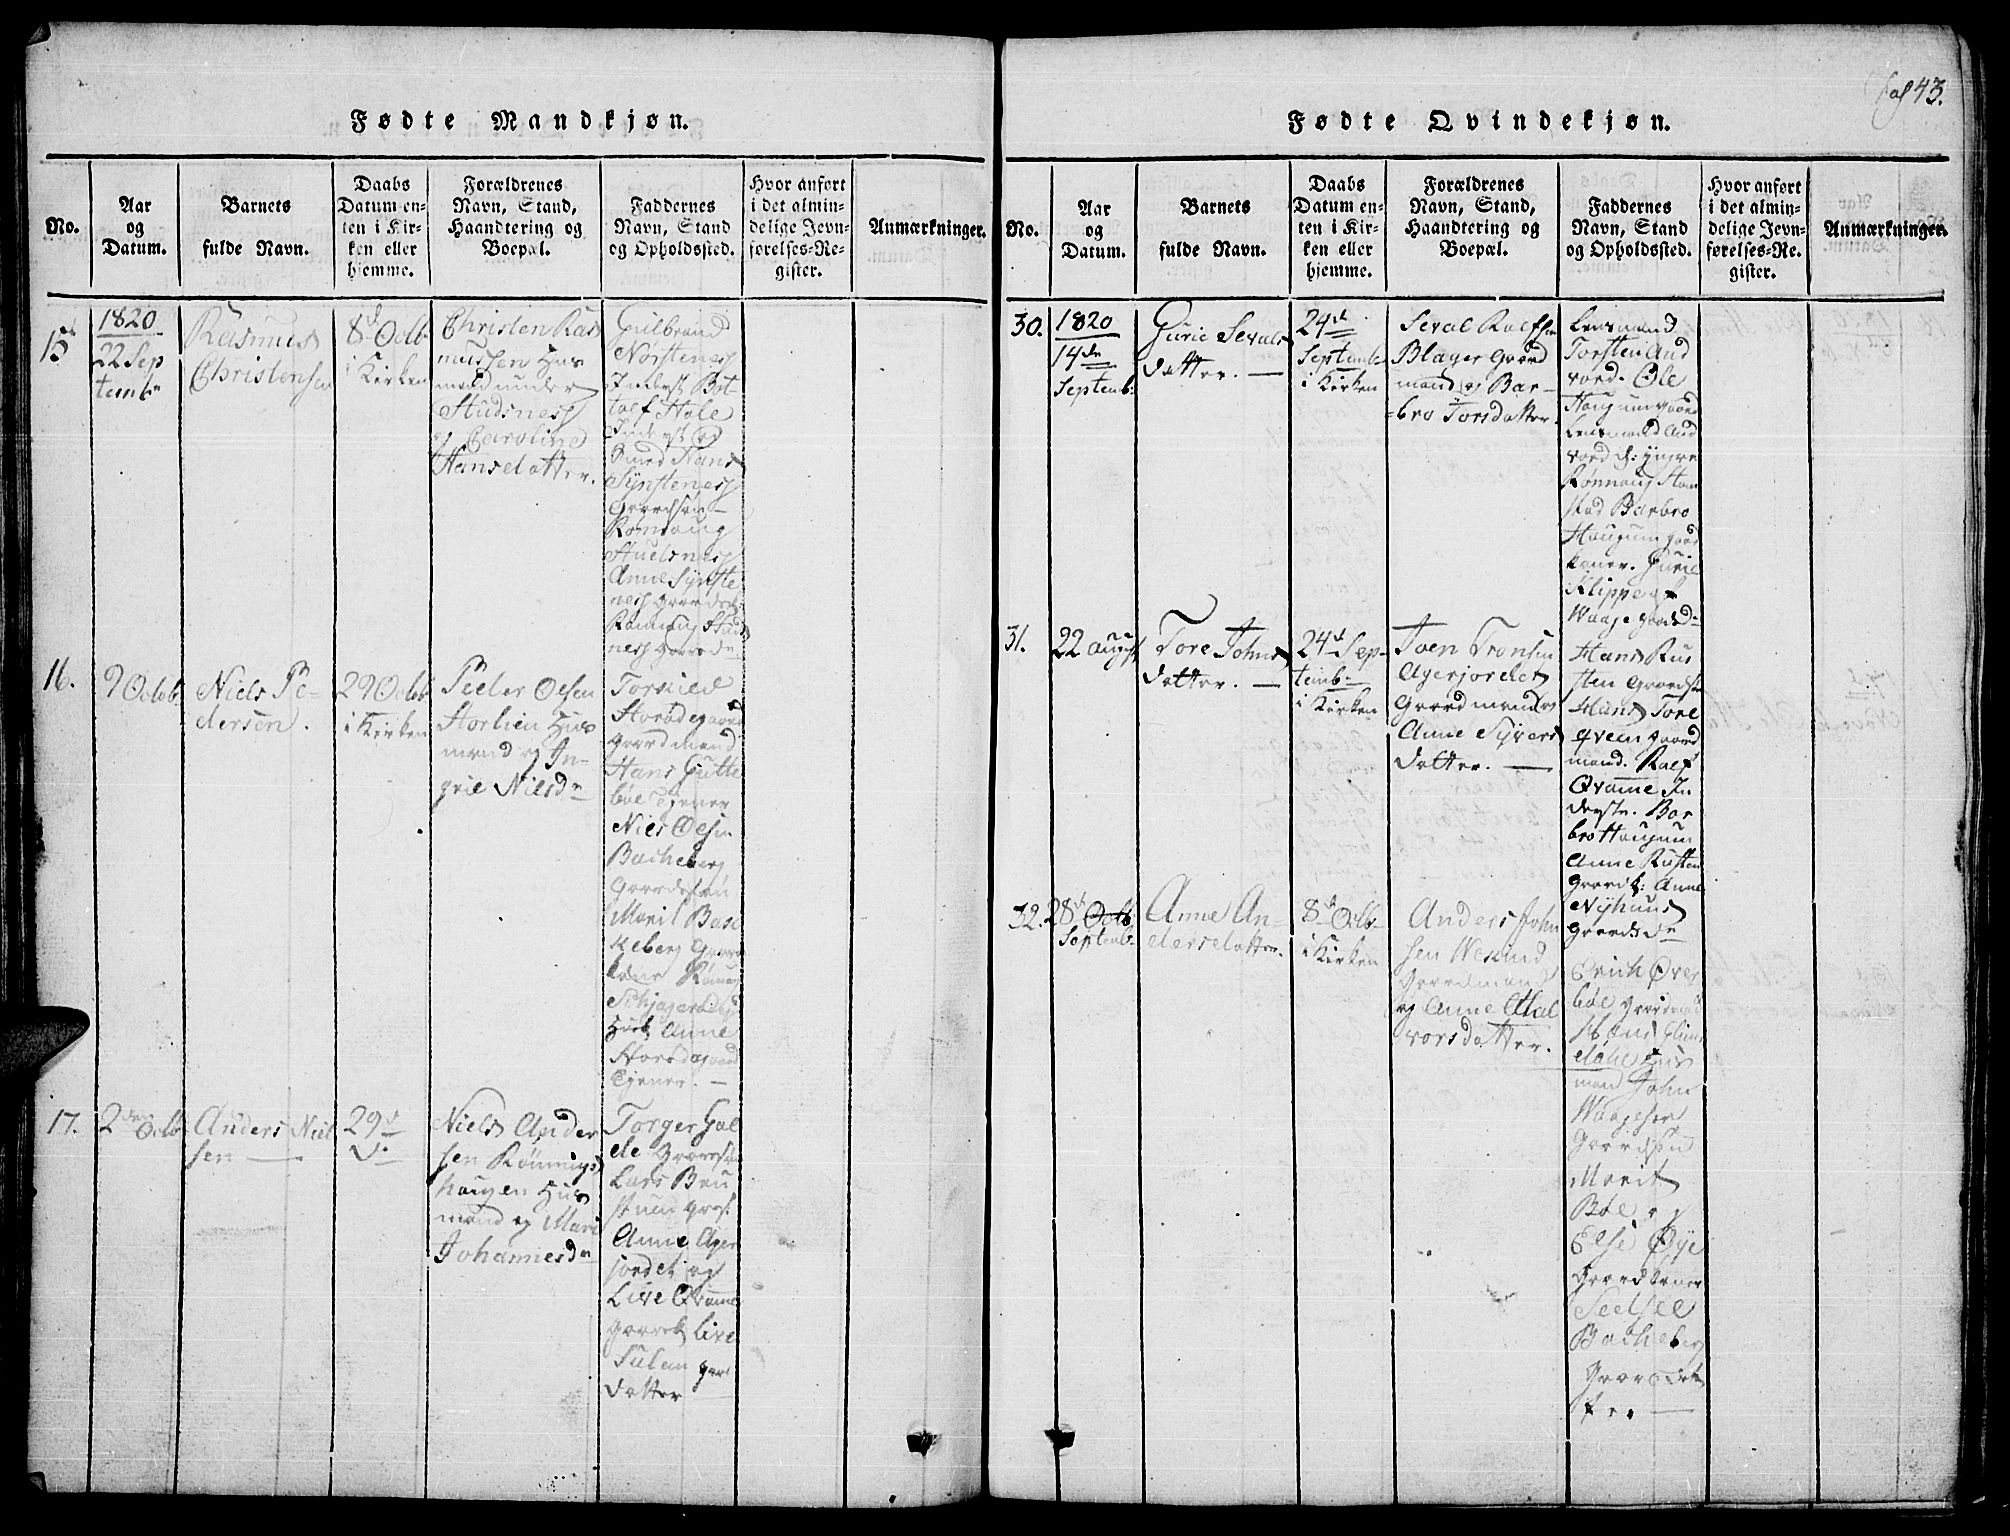 Fol 43.
Fødte Mandkjøn.
No.
Aar
og
Datum.
Barnets
fulde Navn.
Daabs
Datum en-
ten i Kir-
ken eller
hjemme.
Forældrenes
Navn, Stand,
Haandtering og
Boepæl.
Faddernes
Navn, Stand
og Opholdssted.
Hvor anført
i det almin-
delige Jevn-
førelses-Re-
gister.
Anmærkninger.
15
1820
22 Sep
temb
Rasmus
Christensen
8d Octb
i Kirken
Christen Ras
mussen Hus
mand under
Studsnes
og Caroline
Hansdatter.
Gulbrand
Norstenes
Inderst Bot
tolf Hole
Inderst og
Smed Hans
Synstenes
Gaardsøn
Rønnaug
Studsnes
Anne Synste
nes Gaardsd:
Rønnaug Studs
nes Gaardsdr
16.
9 Octob
Niels Pe-
dersen.
29 Octob
i Kirken
Peder Olsen
Storlien Hus
mand og In-
grie Nielsdr
Torkild
Storødegaard
Gaardmand
Hans Gutte
bøe Tjener
Niels Olsen
Bacheberg
Gaardsøn
Marit Bac
keberg Gaard
kone Rønnaug
Husk Anne
Storødegaard
Tjener.
17.
2den Octb
Anders Niel
sen
29d
do
Niels Ander
sen Rønnings
haugen Hus
mand og Mari
Johannesdr
Torger Gal
de Gaardsøn
Lars Bru
stuen
Anne Ager
jordet og
Live Qvame
Gaardk Live
Sulem Gaar
datter
Fødte Qvindekjøn.
No.
Aar
og
Datum.
Barnets
fulde Navn.
Daabs
Datum en-
ten i Kir-
ken eller
hjemme.
Forældrenes
Navn, Stand,
Haandtering og
Boepæl.
Faddernes
Navn, Stand
og Opholdssted.
Hvor anført
i det almin-
delige Jevn-
førelses-Re-
gister.
Anmærkninger.
30.
1820
14de
Septemb:
Gurie Sevals
datter.
24d
Septemb
i Kirken
Seval Rolfsen
Blager Gaard
mand og Bar-
bro Torsdatter
Lensmand
Torsten Aud
vord. Ole
Haugum Gaard
Lensmand Aud
vord d: yngre
Rønnaug Ham
stad Barbro
Haugum Gaard
koner. Gurie
Klipperg
Waage Gaardsd
31.
22 Augst
Tore Johns
datter.
24d Sep-
temb
i Kirken
Joen Tronsen
Agerjordet
Gaardmand og
Anne Syvers
datter.
Hans Rus
ten Gaards
Hans Tore
qveen Gaard
mand. Rolf
Qvame In
derst. Bar
bro Haugum
Anne Rusten
Gaardk: Anne
Nyhuus
Gaardsdr
32.
28d Octb
Septemb
Anne An-
dersdatter.
8d Octb
i Kirken
Anders John
sen Wesund
Gaardmand
og Anne Hal
vorsdatter.
Erich Øver
bøe Gaardmand
Hans Glim
dahl Hus
mand John
Gaardsøn
Marit
Bøe og
Else Øye
Gaardkoner
Bacheberg
Gaardsdat
ter.